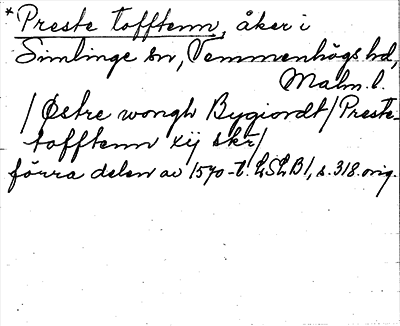 *Preste tofftenn, åker i
Simlinge sn, Vemmenhögs hd,
Malm. l.
/ Østre wongh Bygiordt / Preste-
tofftenn xij skr /
förra delen av 1570-t. LSLB1, s. 318. orig.